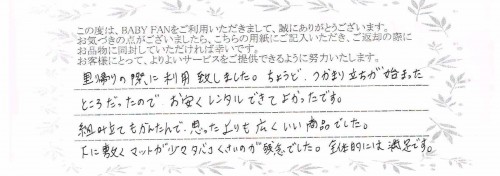 この度は、BABY FANをご利用いただきまして、誠にありがとうございます。
お気づきの点がございましたら、こちらの用紙にご記入いただき、ご返却の際に
お品物に同封していただければ幸いです。
お客様にとって、よりよいサービスをご提供できるように努力いたします。
里帰りの際に利用致しました。ちょうど、つかまり立ちが始まった
ところだったので、お安くレンタルできてよかったです。
組み立てもかんたんで、思ったよりも広くいい商品でした。
下に敷くマットが少々タバコくさいのが残念でした。全体的には満足です。